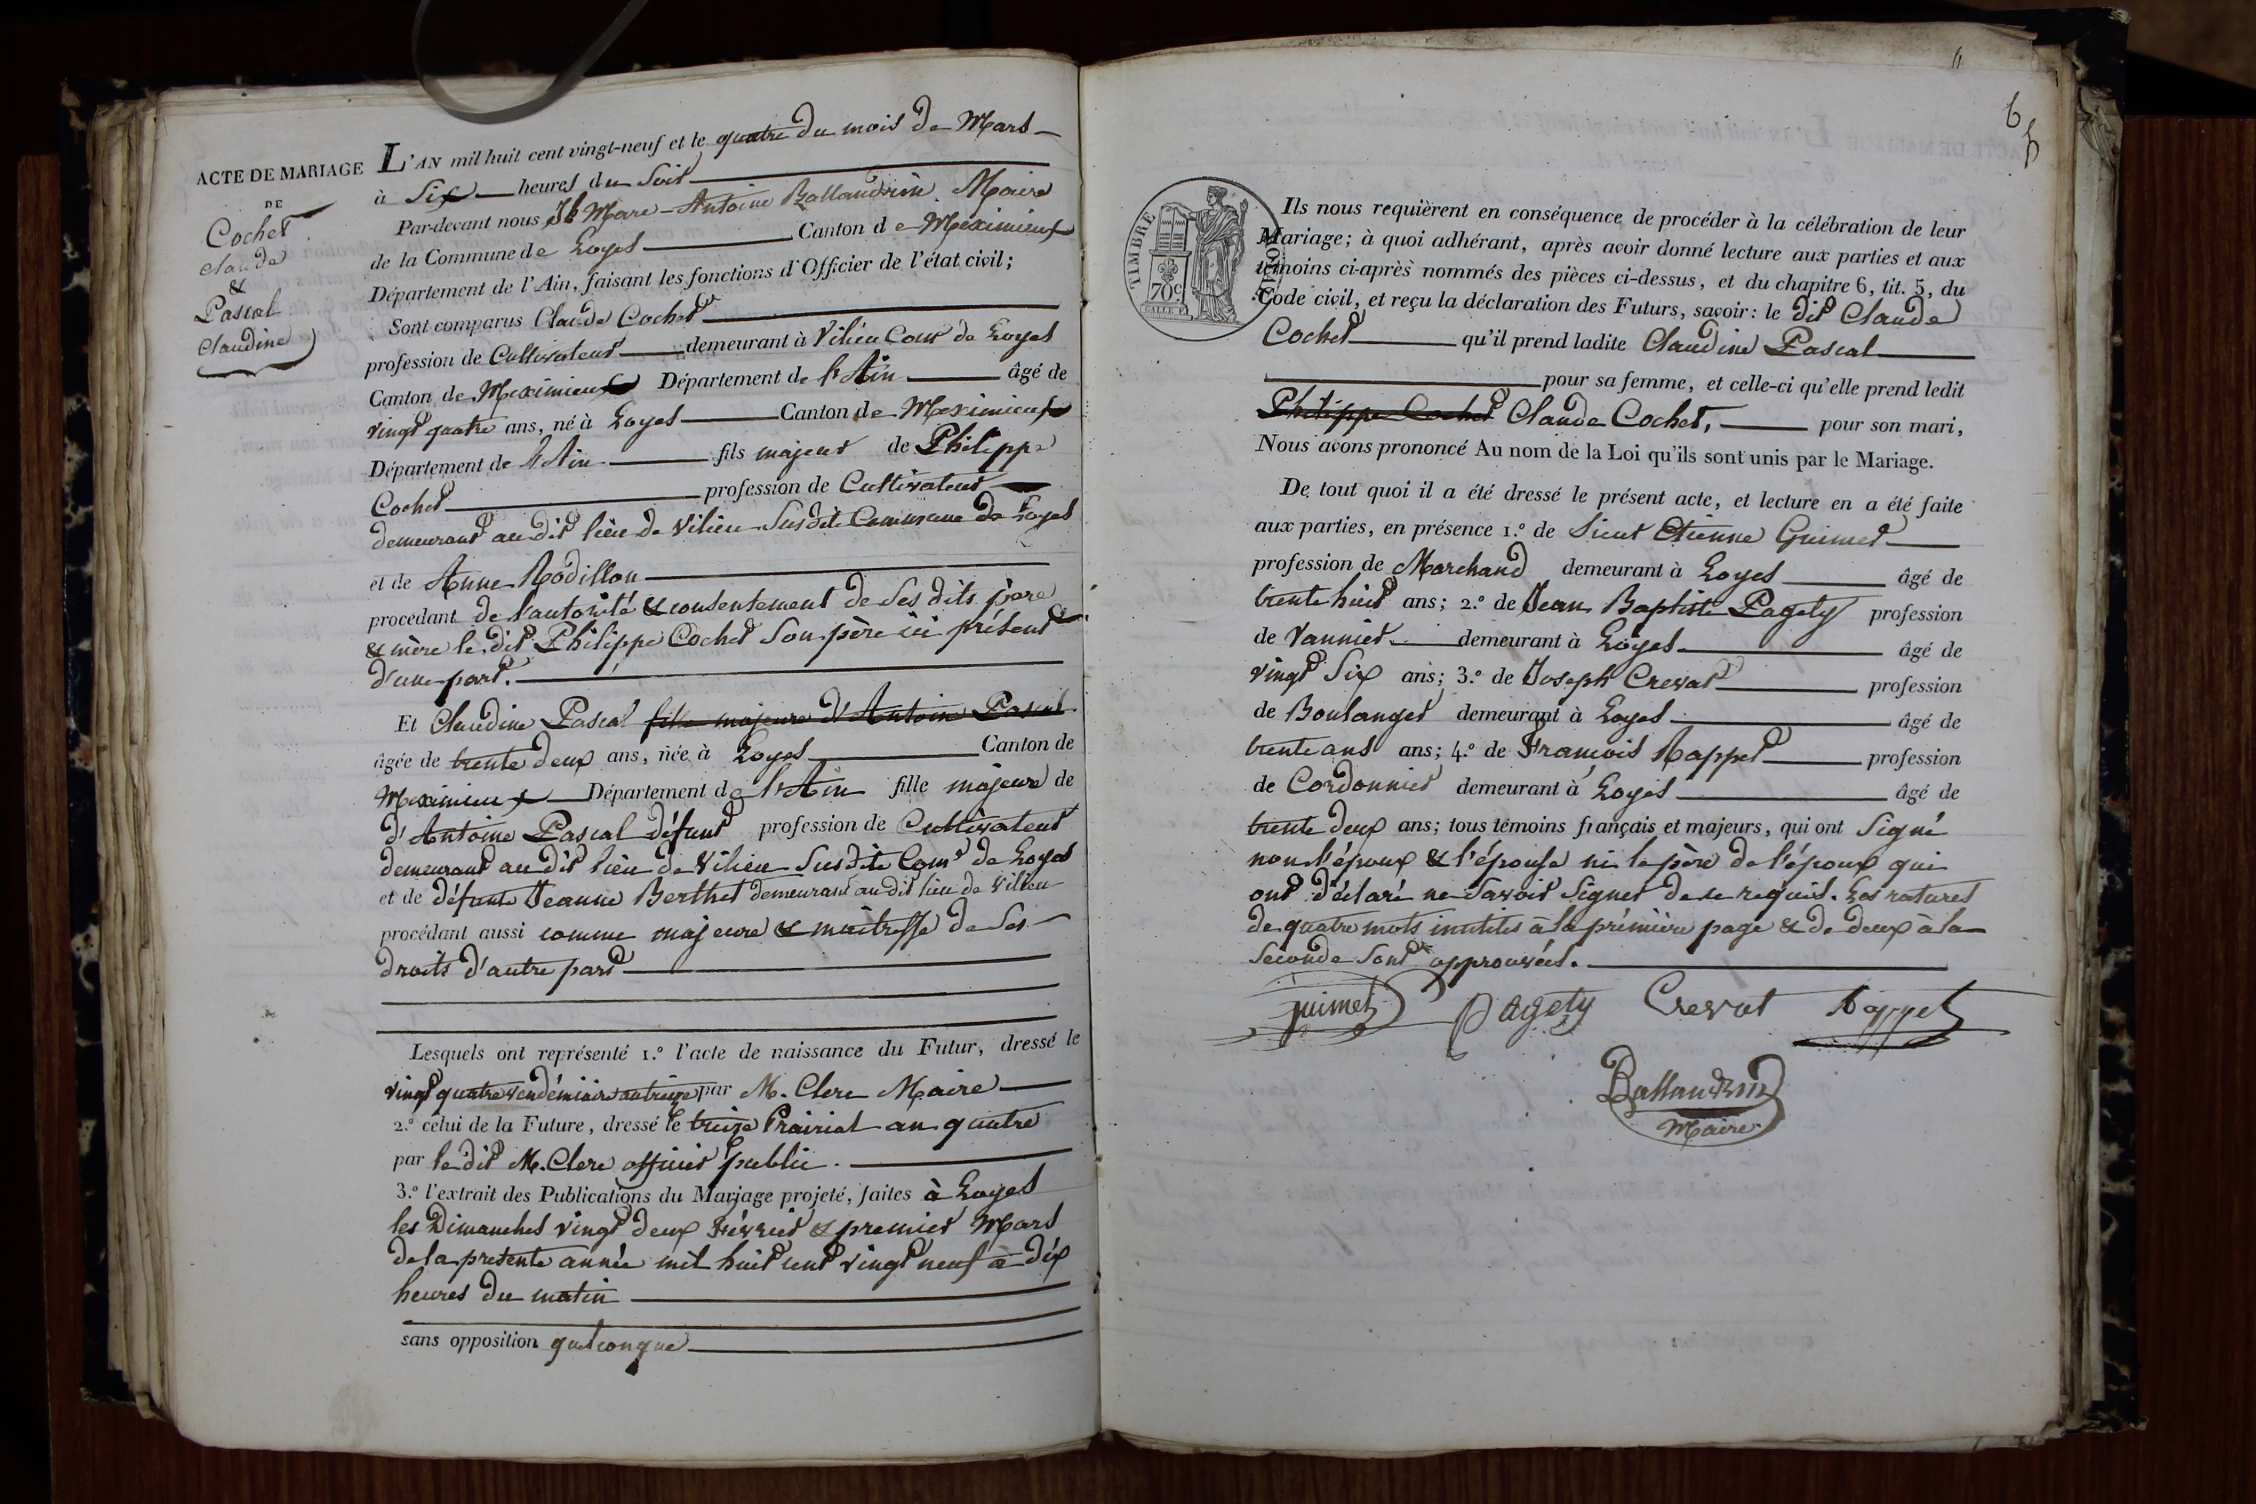 ACTE DE MARIAGE
DE
Cochet
Claude
&
Pascal
Claudine
L'AN mil huit cent vingt-neuf et le quatre du mois de Mars
à Six heures du Soir
Par-devant nous Marc-Antoine Ballandrin Maire
de la Commune de Loyes Canton de Meximieux
Département de l'Ain, faisant les fonctions d'Officier de l'état civil;
Sont comparus Claude Cochet
profession de Cultivateur demeurant à Vilieu Com de Loyes
Canton de Meximieux Département de l'Ain âgé de
vingt quatre ans, né à Loyes Canton de Meximieux
Département de l'Ain fils majeur de Philippe
Cochet profession de Cultivateur
demeurant au dit lieu de Vilieu Susdite Commune de Loyes
et de Anne Rodillon
procédant de l'autorité & consentement de Ses dits père
& mère le dit Philippe Cochet Son père ici présent
d'une part.
Et Claudine Pascal fille majeure d'Antoine Pascal
âgée de trente deux ans, née à Loyes Canton de
Meximieux Département de l'Ain fille majeure de
d'Antoine Pascal défunt profession de Cultivateur
demeurant au dit lieu de Vilieu Susdite Com de Loyes
et de défunte Jeanne Berthet demeurant au dit lieu de Vilieu
procédant aussi comme majeure & maitresse de Ses
droits d'autre part
Lesquels ont représenté 1.º l'acte de naissance du Futur, dressé le
vingt quatre vendémiaire an treize par M. Clerc Maire
2.º celui de la Future, dressé le treize Prairial an quatre
par le dit M. Clerc officier public.
3.º l'extrait des Publications du Mariage projeté, faites à Loyes
les Dimanches vingt deux Février & premier Mars
de la presente année mil huit cent vingt neuf à dix
heures du matin
sans opposition quelconque
6
TIMBRE ROYAL
70c
Ils nous requièrent en conséquence de procéder à la célébration de leur
Mariage; à quoi adhérant, après avoir donné lecture aux parties et aux
témoins ci-après nommés des pièces ci-dessus, et du chapitre 6, tit. 5, du
Code civil, et reçu la déclaration des Futurs, savoir: le dit Claude
Cochet qu'il prend ladite Claudine Pascal
pour sa femme, et celle-ci qu'elle prend ledit
Philippe Cochet Claude Cochet, pour son mari,
Nous avons prononcé Au nom de la Loi qu'ils sont unis par le Mariage.
De tout quoi il a été dressé le présent acte, et lecture en a été faite
aux parties, en présence 1.º de Sieur Etienne Guimet
profession de Marchand demeurant à Loyes âgé de
trente huit ans; 2.º de Jean Baptiste Pagety profession
de Vannier demeurant à Loyes âgé de
vingt Six ans; 3.º de Joseph Crevat profession
de Boulanger demeurant à Loyes âgé de
trente ans ans; 4.º de François Rappet profession
de Cordonnier demeurant à Loyes âgé de
trente deux ans; tous témoins français et majeurs, qui ont Signé
non l'époux & l'épouse ni le père de l'époux qui
ont déclaré ne Savoir Signer de ce requis. Les ratures
de quatre mots inutiles à la prémière page & de deux à la
Seconde Sont approuvées.
Guimet Pagety Crevat Rappet
Ballandrin
Maire